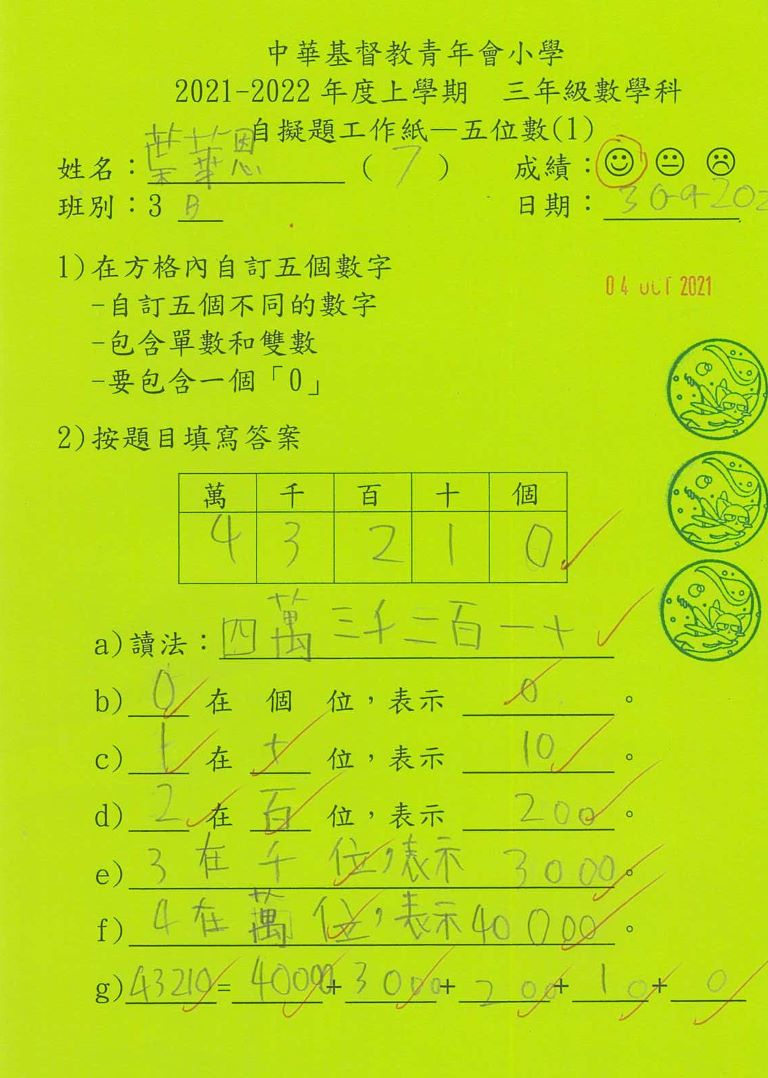 中華基督教青年會小學
2021-2022 年度上學期　三年級數學科
自擬題工作紙—五位數(1)
姓名：葉華恩 ( 7 )　成績：
班別：3 B　日期：30-9-202
1)在方格內自訂五個數字
04 OCT 2021
-自訂五個不同的數字
-包含單數和雙數
-要包含一個「0」
2)按題目填寫答案
萬 千 百 十 個
4 3 2 1 0
a)讀法：四萬三千二百一十
b) 0 在 個 位，表示 0 。
c) 1 在 十 位，表示 10 。
d) 2 在 百 位，表示 200 。
e) 3 在 千 位，表示 3000 。
f) 4 在 萬 位，表示 40000 。
g) 43210 = 40000 + 3000 + 200 + 10 + 0